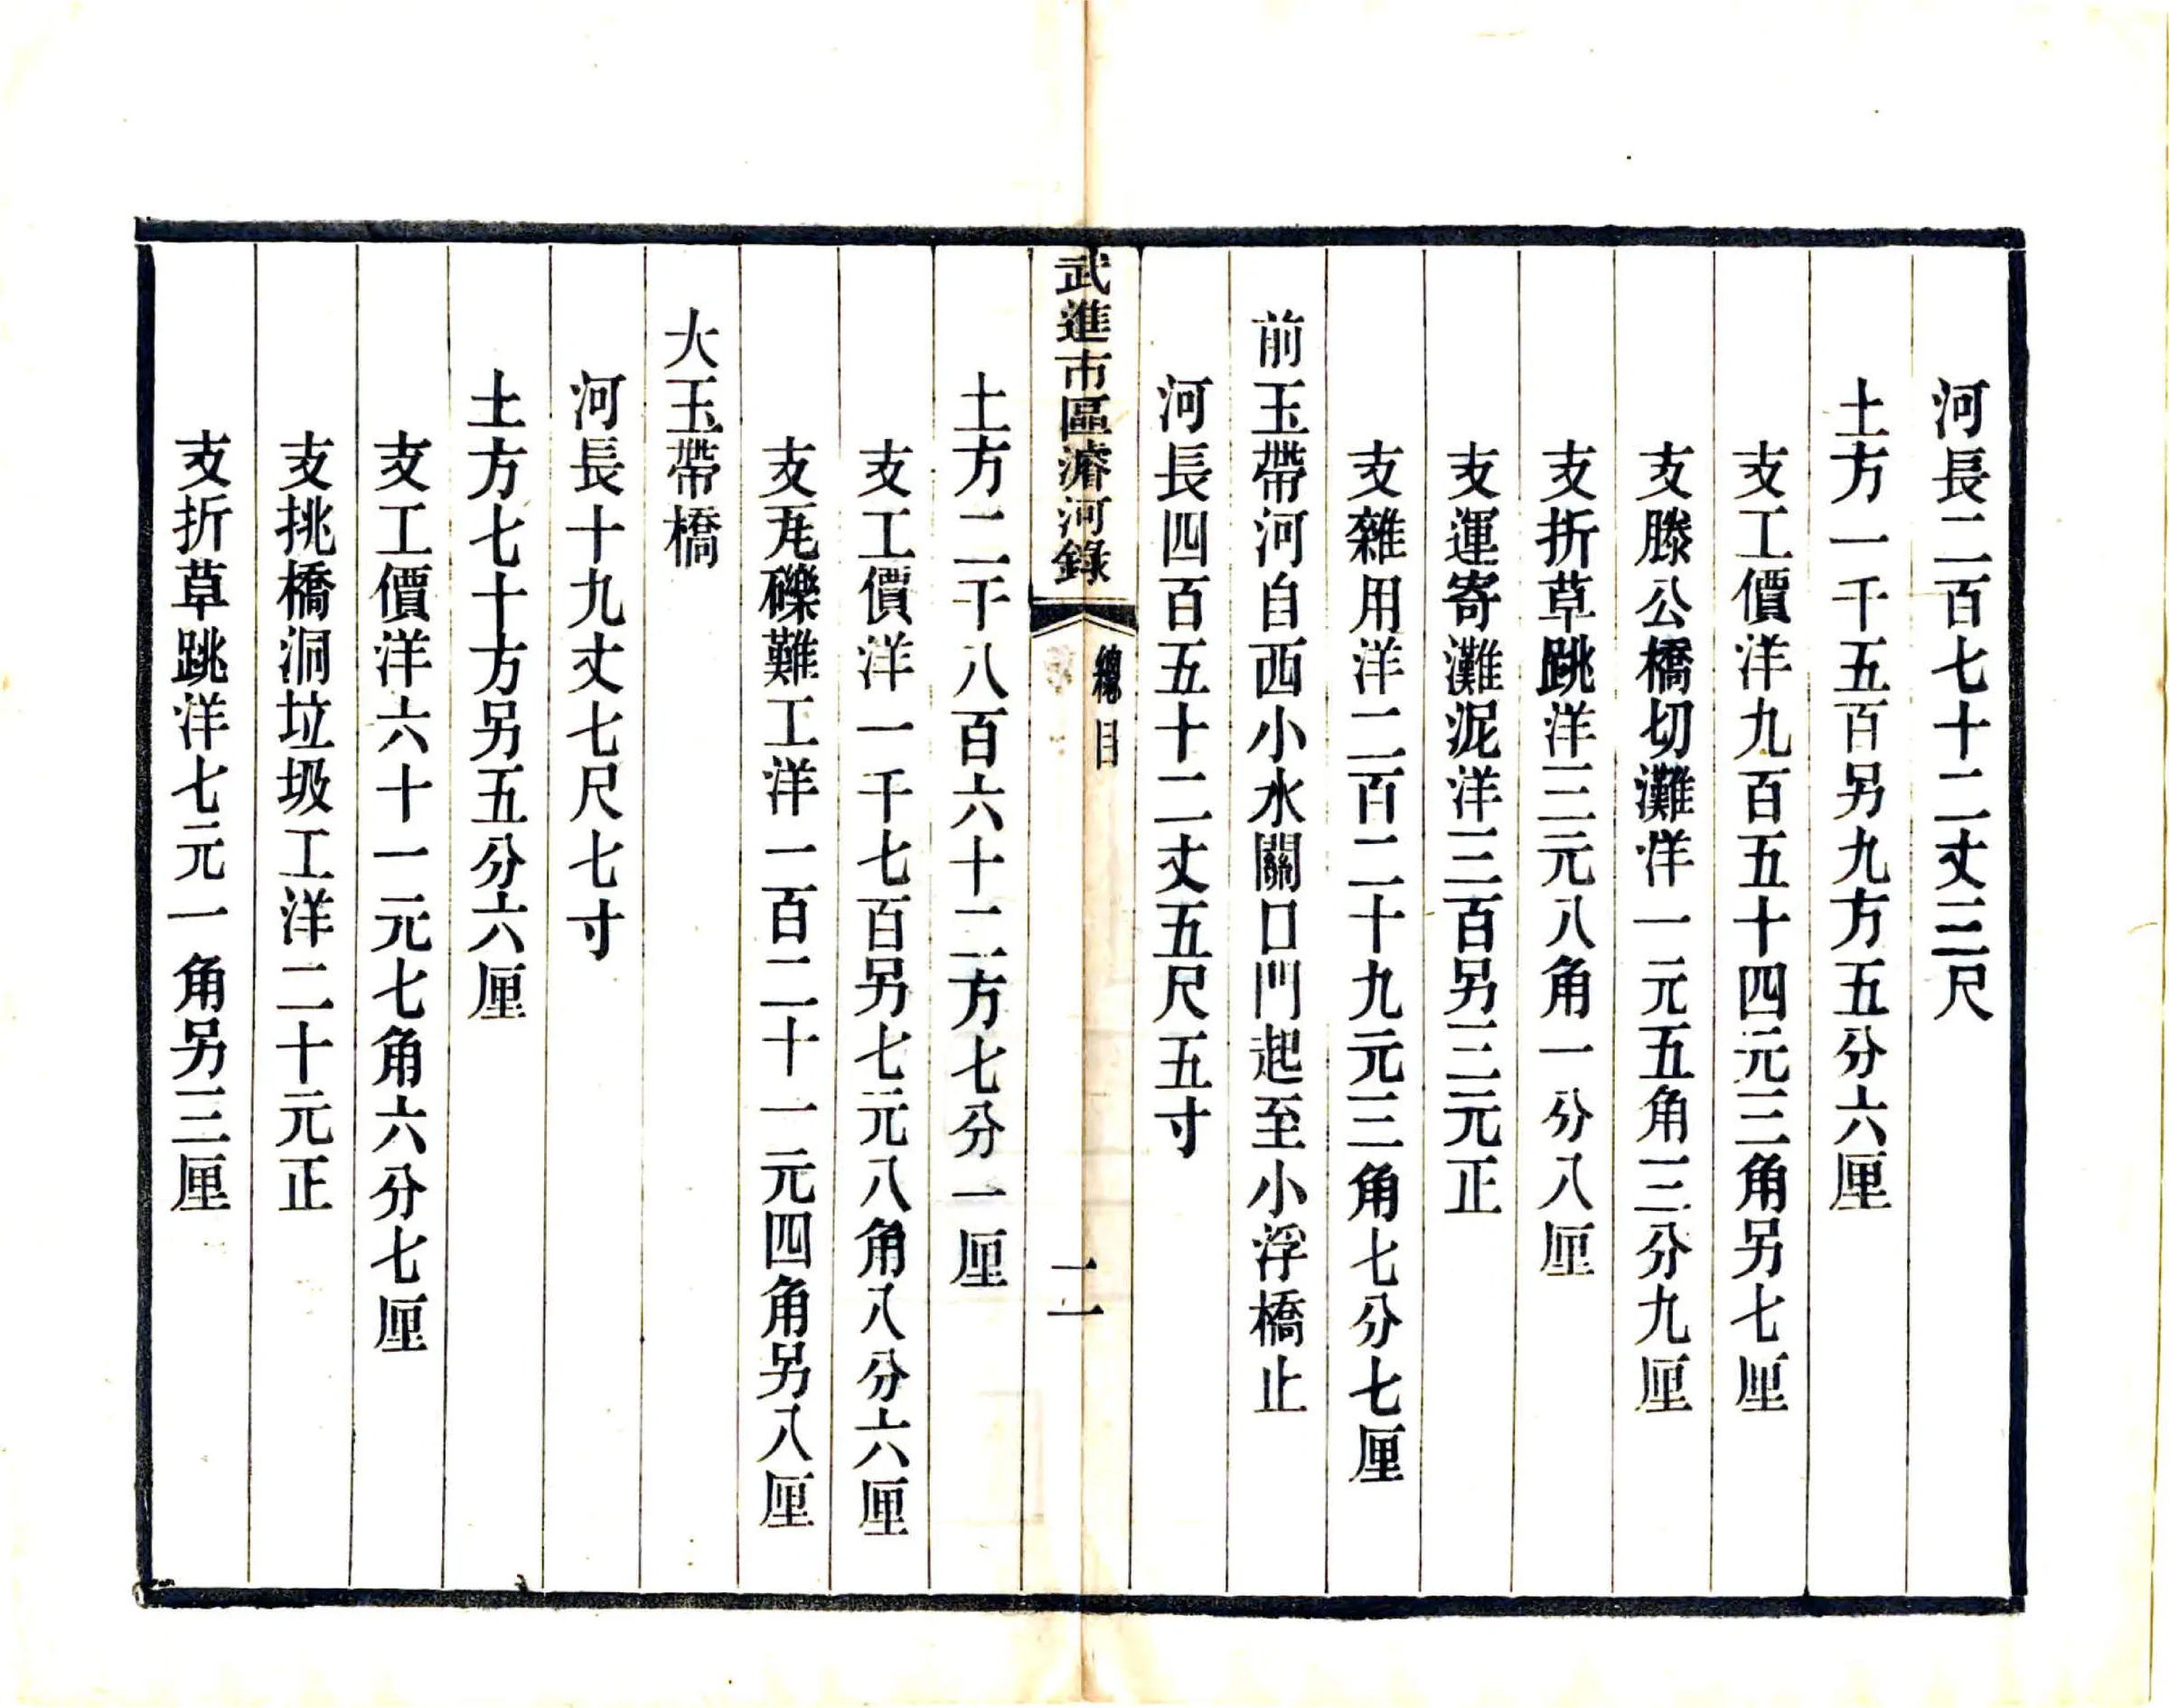 河長二百七十二丈三尺
土方一千五百另九方五分六厘
支工價洋九百五十四元三角另七厘
支滕公橋切灘洋一元五角三分九厘
支折草跳洋三元八角一分八厘
支運寄灘泥洋三百另三元正
支雜用洋二百二十九元三角七分七厘
前玉帶河自西小水關口門起至小浮橋止
河長四百五十二丈五尺五寸
武進市區濬河錄
總目
二
土方二千八百六十二方七分一厘
支工價洋一千七百另七元八角八分六厘
支瓦礫難工洋一百二十一元四角另八厘
大玉帶橋
河長十九丈七尺七寸
土方七十方另五分六厘
支工價洋六十一元七角六分七厘
支挑橋洞垃圾工洋二十元正
支折草跳洋七元一角另三厘